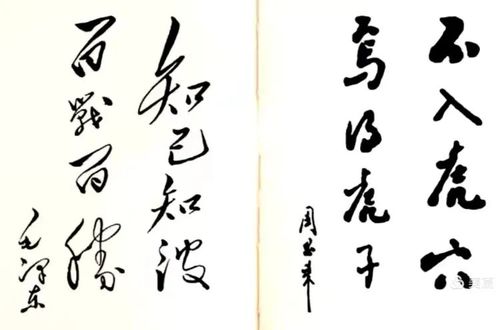 不入虎穴
焉得虎子
周恩来
知己知彼
百戰百勝
毛泽东
美篇